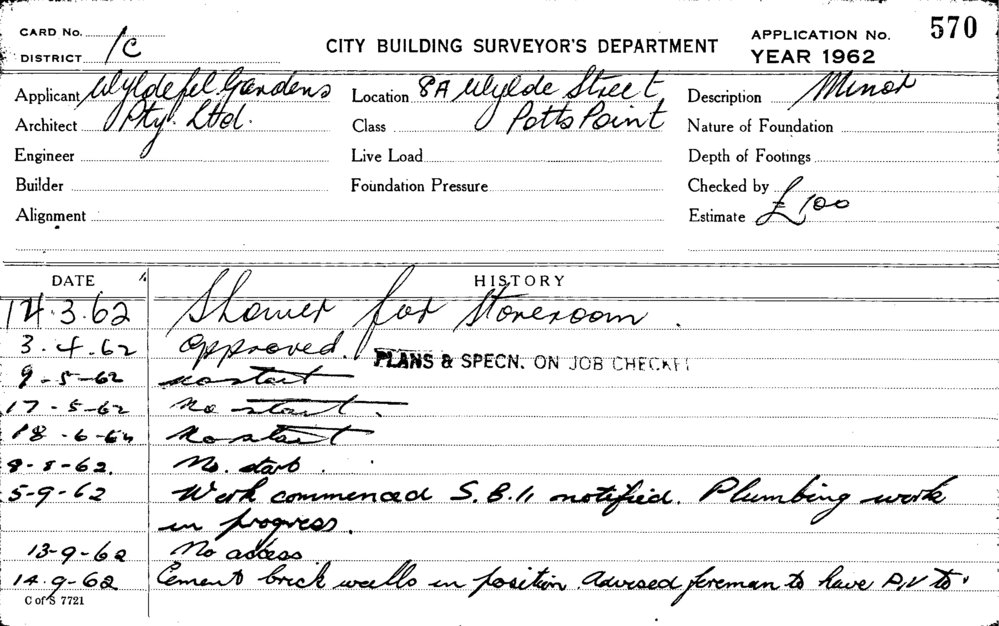 CARD No.
DISTRICT 1C
CITY BUILDING SURVEYOR'S DEPARTMENT
APPLICATION No. 570
YEAR 1962
Applicant Wyldefel Gardens
Location 8A Wylde Street
Description Minor
Architect Pty. Ltd.
Class Potts Point
Nature of Foundation
Engineer
Live Load
Depth of Footings
Builder
Foundation Pressure
Checked by
Alignment
Estimate £100
DATE HISTORY
14.3.62 Shower for Storeroom.
3.4.62 Approved. PLANS & SPECN. ON JOB CHECKED
9-5-62 no start
17-5-62 No start.
18-6-62 No start
8-8-62. No. start.
5-9-62 Work commenced S.B.11 notified. Plumbing work
in progress.
13-9-62 No access
14.9-62 Cement brick walls in position. Advised foreman to have P.V to
C of S 7721